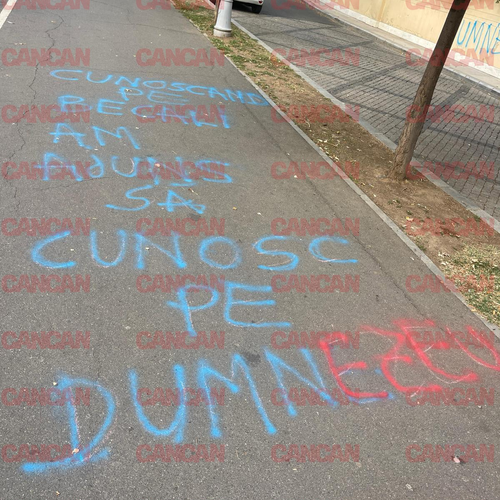 CUNOSCAND
PE
BECALI
AM
AJUNS
SA
CUNOSC
PE
DUMNEZEU
UMNE
CANCAN